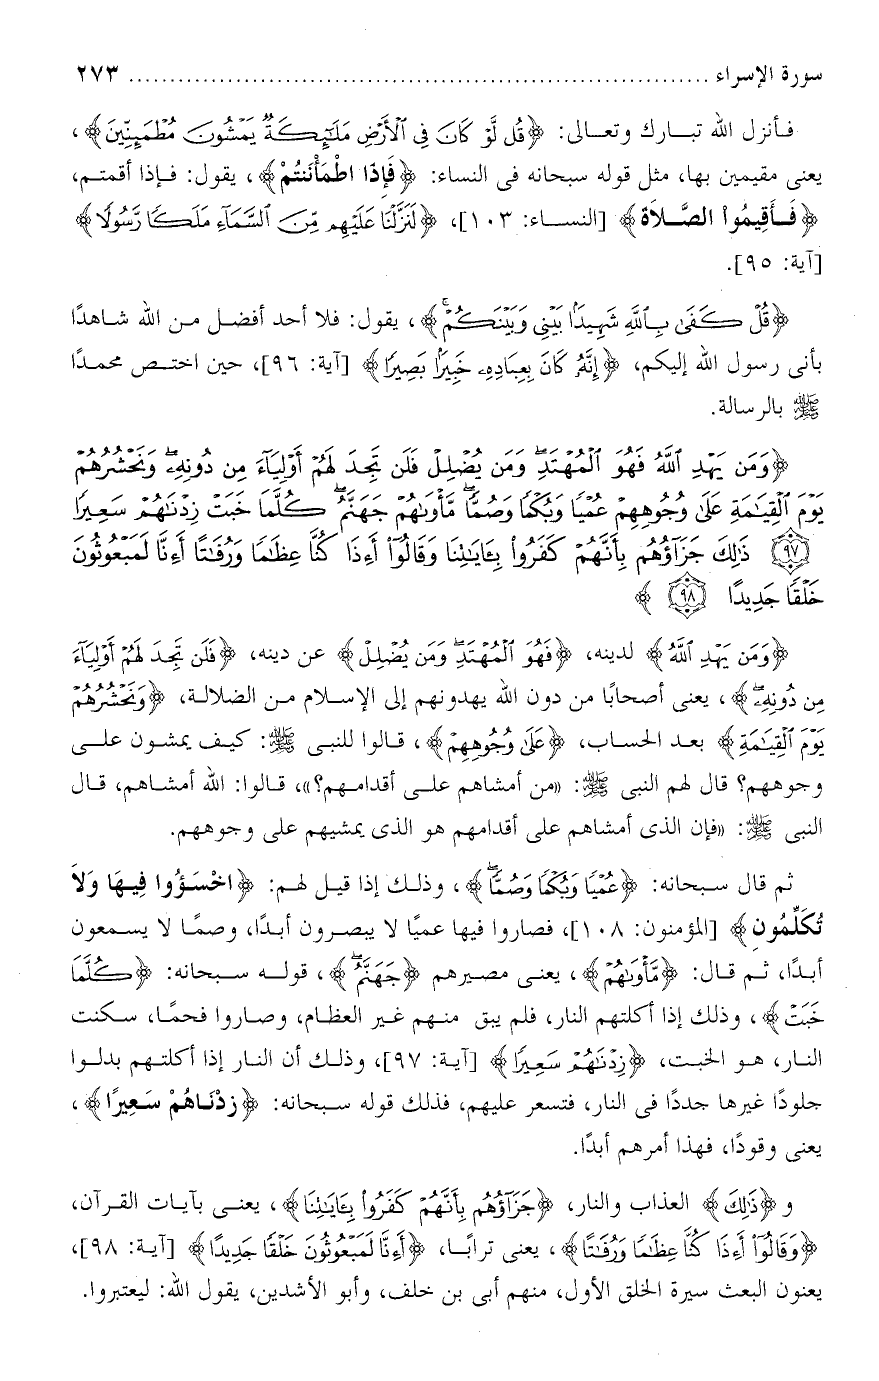 سورة الإسراء ........................................................... ٢٧٣
فأنزل الله تبارك وتعالى: ﴿قُل لَّوْ كَانَ فِي ٱلْأَرْضِ مَلَٰٓئِكَةٌ يَمْشُونَ مُطْمَئِنِّينَ﴾،
يعنى مقيمين بها، مثل قوله سبحانه فى النساء: ﴿فَإِذَا اطْمَأْنَنتُمْ﴾، يقول: فإذا أقمتم،
﴿فَأَقِيمُواْ الصَّلاَةَ﴾ [النساء: ١٠٣]، ﴿لَنَزَّلْنَا عَلَيْهِم مِّنَ ٱلسَّمَآءِ مَلَكًا رَّسُولًا﴾
[آية: ٩٥].
﴿قُلْ كَفَىٰ بِٱللَّهِ شَهِيدًۢا بَيْنِى وَبَيْنَكُمْ ۚ﴾، يقول: فلا أحد أفضل من الله شاهدًا
بأنى رسول الله إليكم، ﴿إِنَّهُۥ كَانَ بِعِبَادِهِۦ خَبِيرًۢا بَصِيرًا﴾ [آية: ٩٦]، حين اختص محمدًا
ﷺ بالرسالة.
﴿وَمَن يَهْدِ ٱللَّهُ فَهُوَ ٱلْمُهْتَدِ ۖ وَمَن يُضْلِلْ فَلَن تَجِدَ لَهُمْ أَوْلِيَآءَ مِن دُونِهِۦ ۖ وَنَحْشُرُهُمْ
يَوْمَ ٱلْقِيَٰمَةِ عَلَىٰ وُجُوهِهِمْ عُمْيًا وَبُكْمًا وَصُمًّا ۖ مَّأْوَىٰهُمْ جَهَنَّمُ ۖ كُلَّمَا خَبَتْ زِدْنَٰهُمْ سَعِيرًا
﴿٩٧﴾ ذَٰلِكَ جَزَآؤُهُم بِأَنَّهُمْ كَفَرُواْ بِـَٔايَٰتِنَا وَقَالُوٓاْ أَءِذَا كُنَّا عِظَٰمًا وَرُفَٰتًا أَءِنَّا لَمَبْعُوثُونَ
خَلْقًا جَدِيدًا ﴿٩٨﴾ ﴾
﴿وَمَن يَهْدِ ٱللَّهُ﴾ لدينه، ﴿فَهُوَ ٱلْمُهْتَدِ ۖ وَمَن يُضْلِلْ﴾ عن دينه، ﴿فَلَن تَجِدَ لَهُمْ أَوْلِيَآءَ
مِن دُونِهِۦ ۖ﴾، يعنى أصحابًا من دون الله يهدونهم إلى الإسلام من الضلالة، ﴿وَنَحْشُرُهُمْ
يَوْمَ ٱلْقِيَٰمَةِ﴾ بعد الحساب، ﴿عَلَىٰ وُجُوهِهِمْ﴾، قالوا للنبى ﷺ: كيف يمشون على
وجوههم؟ قال لهم النبى ﷺ: «من أمشاهم على أقدامهم؟»، قالوا: الله أمشاهم، قال
النبى ﷺ: «فإن الذى أمشاهم على أقدامهم هو الذى يمشيهم على وجوههم.
ثم قال سبحانه: ﴿عُمْيًا وَبُكْمًا وَصُمًّا ۖ﴾، وذلك إذا قيل لهم: ﴿اخْسَؤُوا فِيهَا وَلاَ
تُكَلِّمُونِ﴾ [المؤمنون: ١٠٨]، فصاروا فيها عميًا لا يبصرون أبدًا، وصمًا لا يسمعون
أبدًا، ثم قال: ﴿مَّأْوَىٰهُمْ﴾، يعنى مصيرهم ﴿جَهَنَّمُ ۖ﴾، قوله سبحانه: ﴿كُلَّمَا
خَبَتْ﴾، وذلك إذا أكلتهم النار، فلم يبق منهم غير العظام، وصاروا فحمًا، سكنت
النار، هو الخبت، ﴿زِدْنَٰهُمْ سَعِيرًا﴾ [آية: ٩٧]، وذلك أن النار إذا أكلتهم بدلوا
جلودًا غيرها جددًا فى النار، فتسعر عليهم، فذلك قوله سبحانه: ﴿زِدْنَاهُمْ سَعِيرًا﴾،
يعنى وقودًا، فهذا أمرهم أبدًا.
و ﴿ذَٰلِكَ﴾ العذاب والنار، ﴿جَزَآؤُهُم بِأَنَّهُمْ كَفَرُواْ بِـَٔايَٰتِنَا﴾، يعنى بآيات القرآن،
﴿وَقَالُوٓاْ أَءِذَا كُنَّا عِظَٰمًا وَرُفَٰتًا﴾، يعنى ترابًا، ﴿أَءِنَّا لَمَبْعُوثُونَ خَلْقًا جَدِيدًا﴾ [آية: ٩٨]،
يعنون البعث سيرة الخلق الأول، منهم أبى بن خلف، وأبو الأشدين، يقول الله: ليعتبروا.